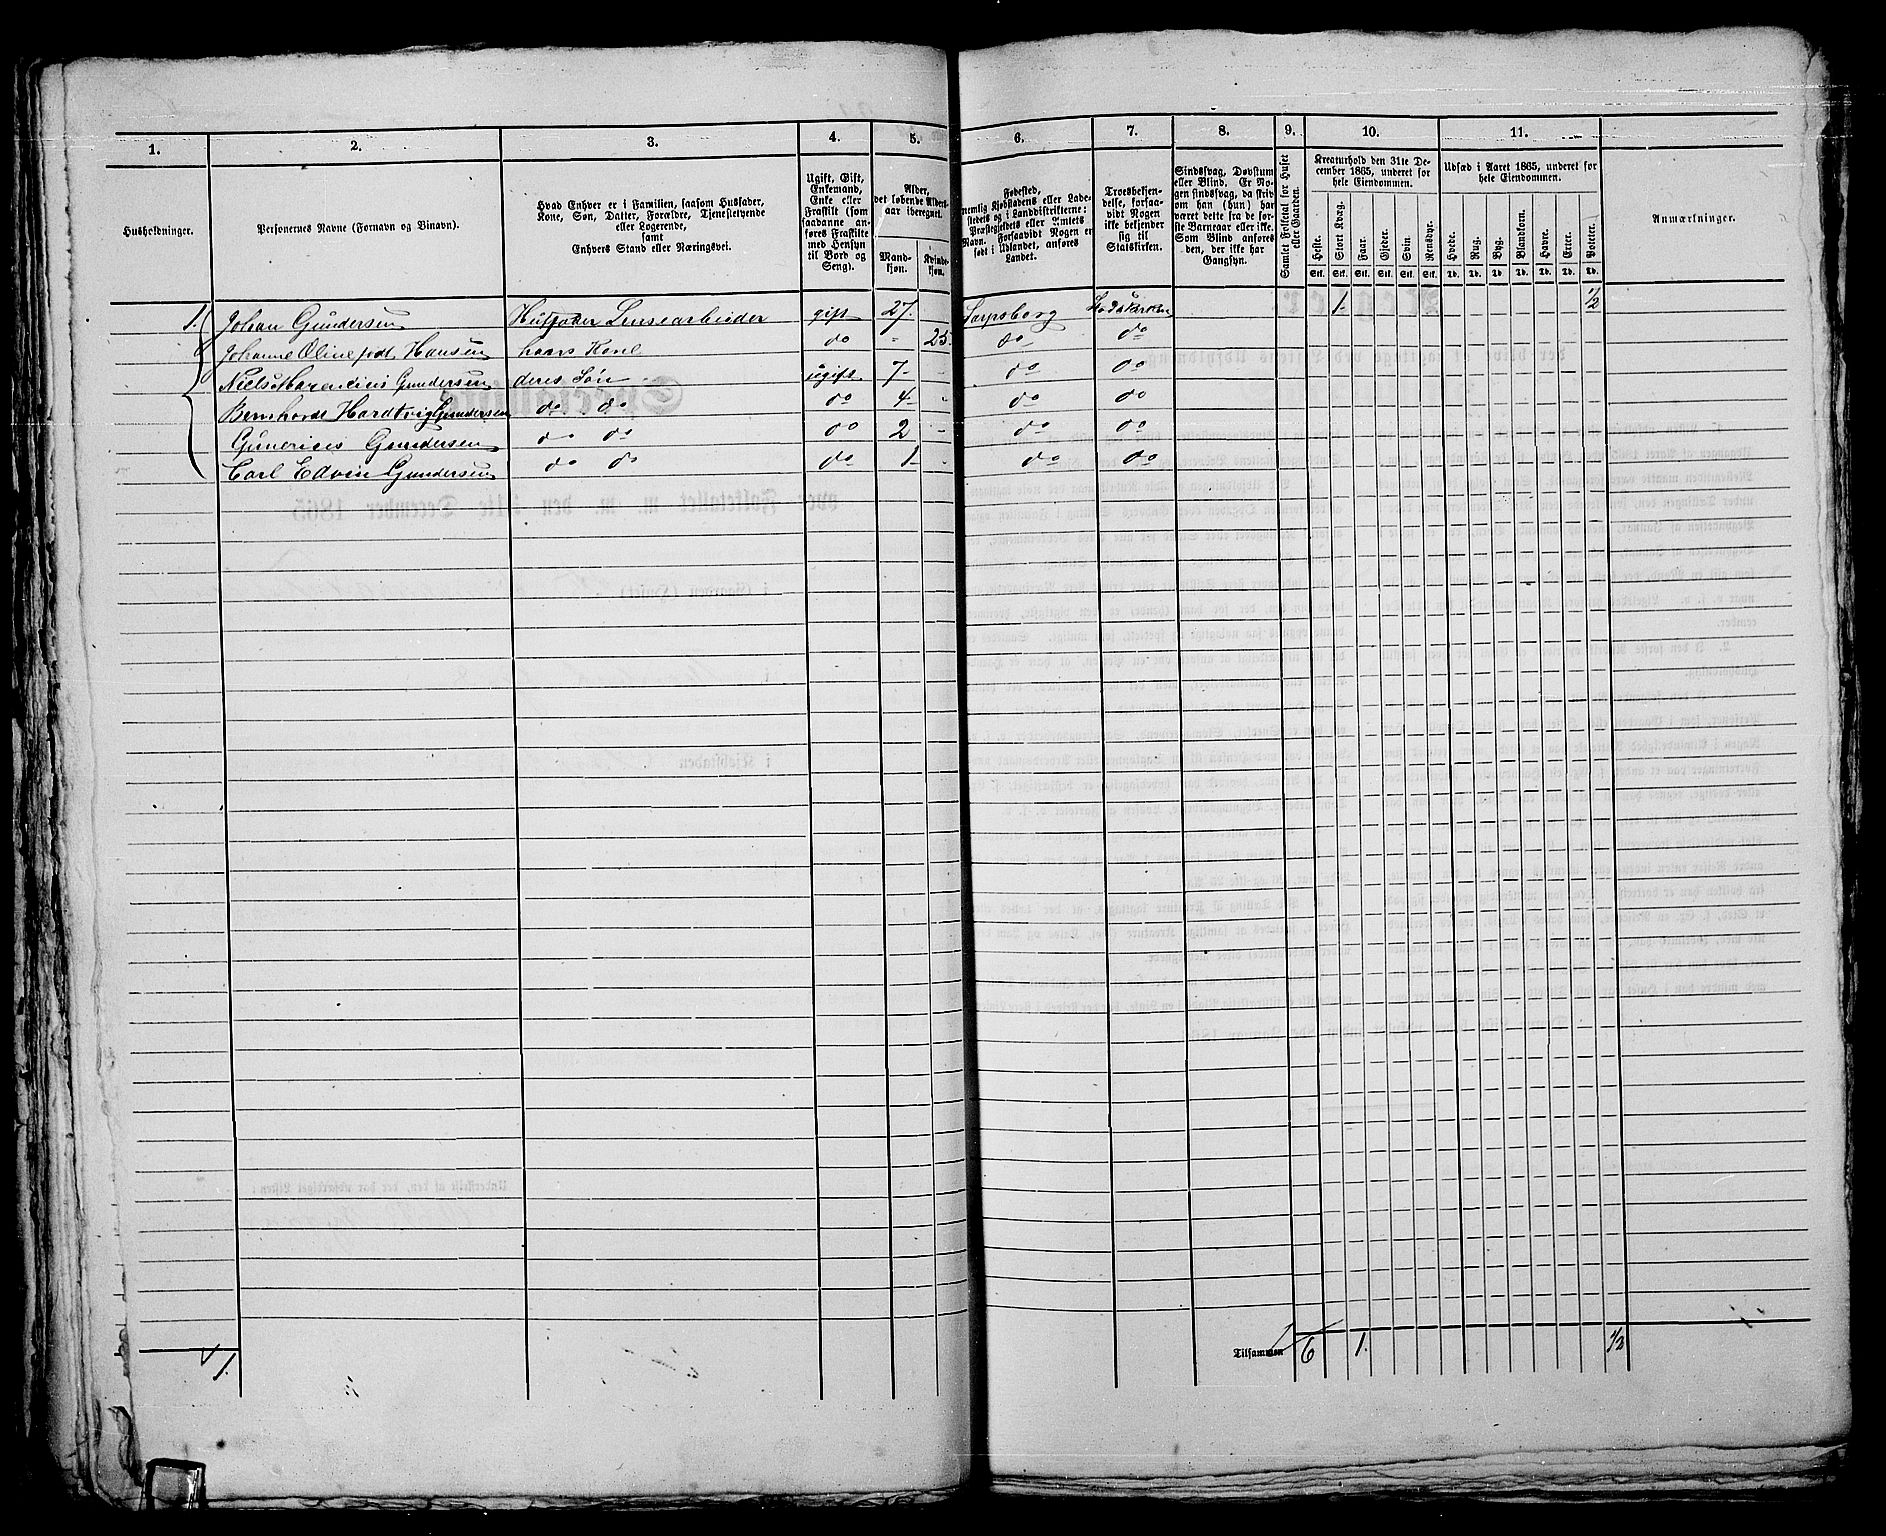 1. 2. 3. 4. 5. 6. 7. 8. 9. 10. 11.
Husholdninger.
Personernes Navne (Fornavn og Binavn).
Hvad Enhver er i Familien, saasom Husfader,
Kone, Søn, Datter, Forældre, Tjenestetyende
eller Logerende,
samt
Enhvers Stand eller Næringsvei.
Ugift, Gift,
Enkemand,
Enke eller
Fraskilt (som
saadanne an-
føres Fraskilte
med Hensyn
til Bord og
Seng).
Alder,
det løbende Alders-
aar iberegnet.
Mand-
kjøn.
Kvinde-
kjøn.
Fødested,
nemlig Kjøbstadens eller Lade-
stedets og i Landdistrikterne:
Præstegjeldets eller Amtets
Navn. Forsaavidt Nogen er
født i Udlandet, anføres
Landet.
Troesbekjen-
delse, forsaa-
vidt Nogen
ikke bekjender
sig til
Statskirken.
Sindssvag, Døvstum
eller Blind. Er No-
gen sindssvag, da hvid-
om han (hun) har
været dette fra de før-
ste Barneaar eller ikke.
Som Blind anføres
den, der ikke har
Gangsyn.
Samlet Folketal for Huset
eller Gaarden.
Kreaturhold den 31te De-
cember 1865, underet for
hele Eiendommen.
Heste. Stort Kvæg. Faar. Gjeder. Svin. Rensdyr.
Stk. Stk. Stk. Stk. Stk. Stk.
Udsæd i Aaret 1865, underet for
hele Eiendommen.
Hvede. Rug. Byg. Blandkorn. Havre. Erter. Poteter.
Td. Td. Td. Td. Td. Td. Td.
Anmærkninger.
1. Johan Gundersen Husfader Lensearbeider gift 27. Sarpsborg Statskirken 1. 1/2
Johanne Oline født Hansen hans Kone do " 25. do do
Niels Marencius Gundersen deres Søn ugift 7 - do do
Bernhordt Hardtvig Gundersen do do do 4 - do do
Gunerius Gundersen do do do 2 - do do
Carl Edvin Gundersen do do do 1 - do do
1. Tilsammen 6 1. 1/2